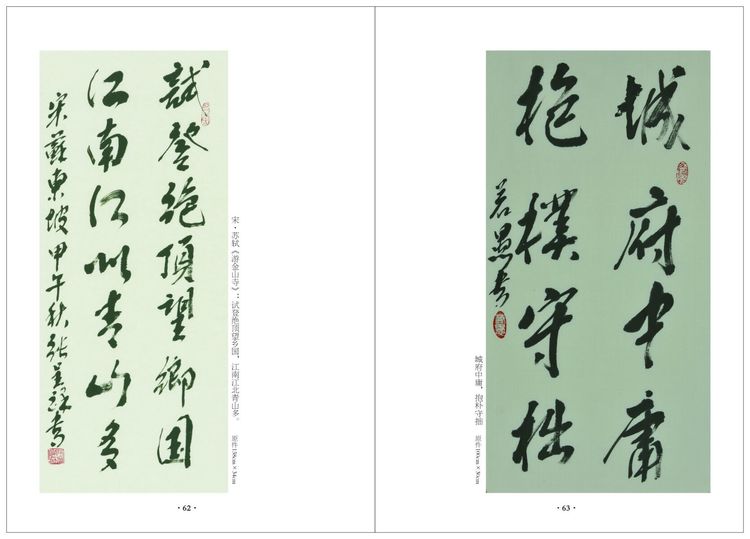 試登絶頂望鄉国
江南江北青山多
宋蘇東坡甲午秋張
宋·苏轼《游金山寺》：试登绝顶望乡国，江南江北青山多。
原件138cm×34cm
·62·
城府中庸
抱樸守拙
若愚书
城府中庸，抱朴守拙
原件100cm×50cm
·63·